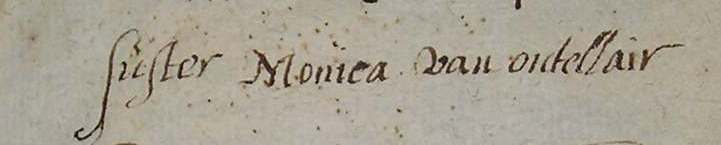 süster Monica van ontellair